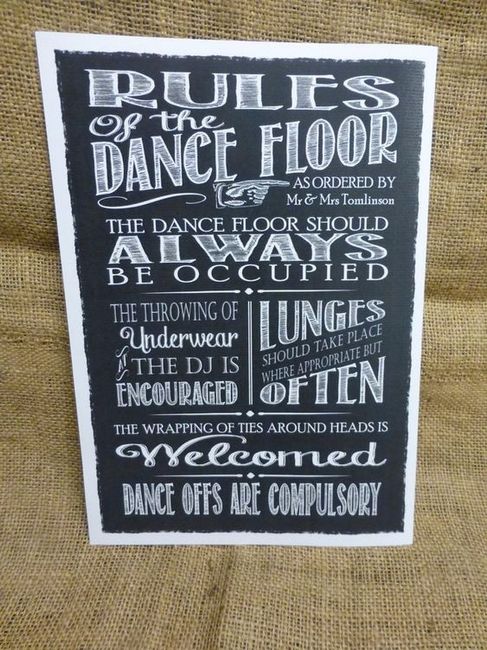 RULES
Of the
DANCE FLOOR
AS ORDERED BY
Mr & Mrs Tomlinson
THE DANCE FLOOR SHOULD
ALWAYS
BE OCCUPIED
THE THROWING OF
Underwear
AT THE DJ IS
ENCOURAGED
LUNGES
SHOULD TAKE PLACE
WHERE APPROPRIATE BUT
OFTEN
THE WRAPPING OF TIES AROUND HEADS IS
Welcomed
DANCE OFFS ARE COMPULSORY